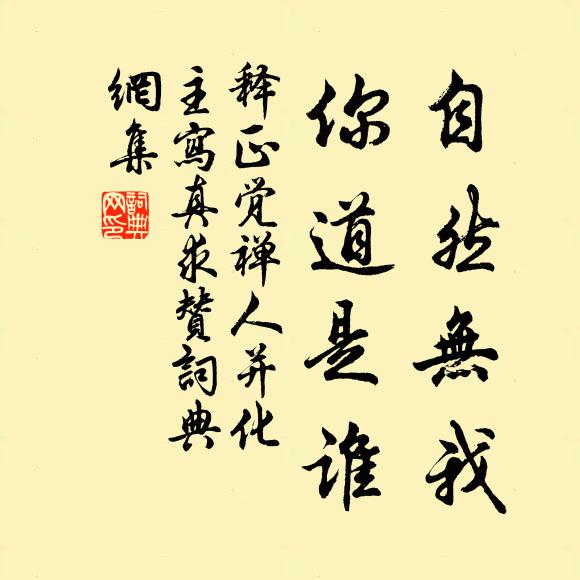 自然無我
你道是谁
释正觉禅人并化
主寫真求贊詞典
網集
詞典
网印